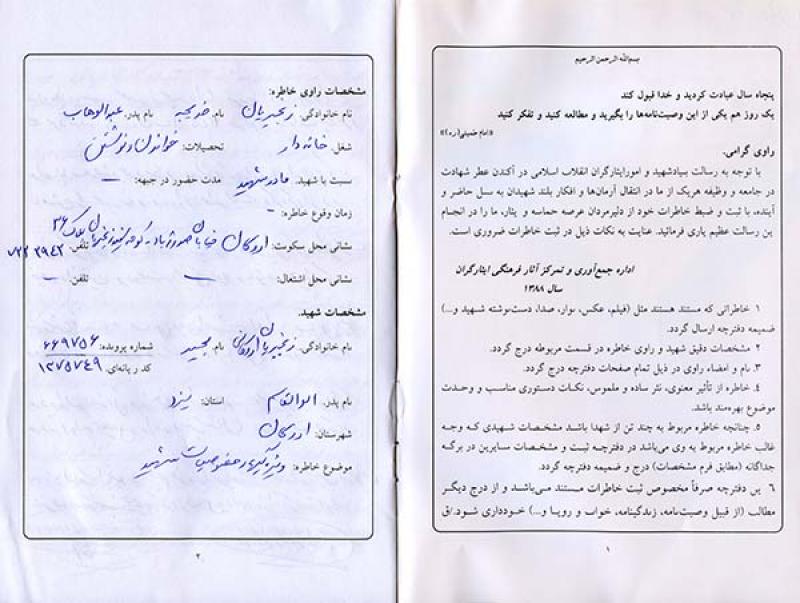 بسم‌الله الرحمن الرحیم
پنجاه سال عبادت کردید و خدا قبول کند
یک روز هم یکی از این وصیت‌نامه‌ها را بگیرید و مطالعه کنید و تفکر کنید
«امام خمینی(ره)»
راوی گرامی.
با توجه به رسالت بنیادشهید و امورایثارگران انقلاب اسلامی در آکندن عطر شهادت
در جامعه و وظیفه هریک از ما در انتقال آرمان‌ها و افکار بلند شهیدان به نسل حاضر و
آینده، با ثبت و ضبط خاطرات خود از دلیرمردان عرصه حماسه و یثار، ما را در انجام
ین رسالت عظیم یاری فرمائید. عنایت به نکات ذیل در ثبت خاطرات ضروری است.
اداره جمع‌آوری و تمرکز آثار فرهنگی ایثارگران
سال ۱۳۸۸
۱ خاطراتی که مستند هستند مثل (فیلم، عکس، نوار، صدا، دست‌نوشته شهید و...)
ضمیمه دفترچه ارسال گردد.
۲ مشخصات دقیق شهید و راوی خاطره در قسمت مربوطه درج گردد.
۳. نام و امضاء راوی در ذیل تمام صفحات دفترچه درج گردد.
۴. خاطره از تأثیر معنوی، نثر ساده و ملموس، نکات دستوری مناسب و وحدت
موضوع بهره‌مند باشد.
۵. چنانچه خاطره مربوط به چند تن از شهدا باشد مشخصات شهیدی که وجه
غالب خاطره مربوط به وی می‌باشد در دفترچه ثبت و مشخصات سایرین در برگه
جداگانه (مطابق فرم مشخصات) درج و ضمیمه دفترچه گردد.
۶ ین دفترچه صرفاً مخصوص ثبت خاطرات مستند می‌باشد و از درج دیگر
مطالب (از قبیل وصیت‌نامه، زندگینامه، خواب و رویا و...) خودداری شود./ق
۱
مشخصات راوی خاطره:
نام خانوادگی. زنجیریان نام. خدیجه نام پدر. عبدالوهاب
شغل. خانه دار تحصیلات: خواندن و نوشتن
نسبت با شهید. مادر شهید مدت حضور در جبهه: –
زمان وقوع خاطره: –
نشانی محل سکونت: اردکان خیابان کوچه شهید زنجیریان پلاک ۳۶ تلفن: ۷۲۲۳۹۴۲
نشانی محل اشتغال: – تلفن: –
مشخصات شهید:
نام خانوادگی. زنجیریان اردکانی نام. مجید شماره پرونده: ۶۶۹۷۵۶
کد رایانه‌ای. ۱۲۷۵۷۴۹
نام پدر. ابوالقاسم استان: یزد
شهرستان: اردکان
موضوع خاطره: خصوصیات شهید
۲